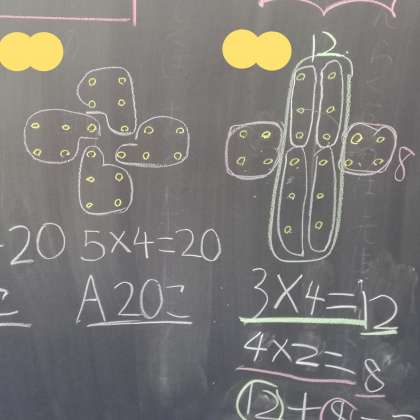 20 5×4=20
A 20こ
12
8
3×4=12
4×2=8
12+8=